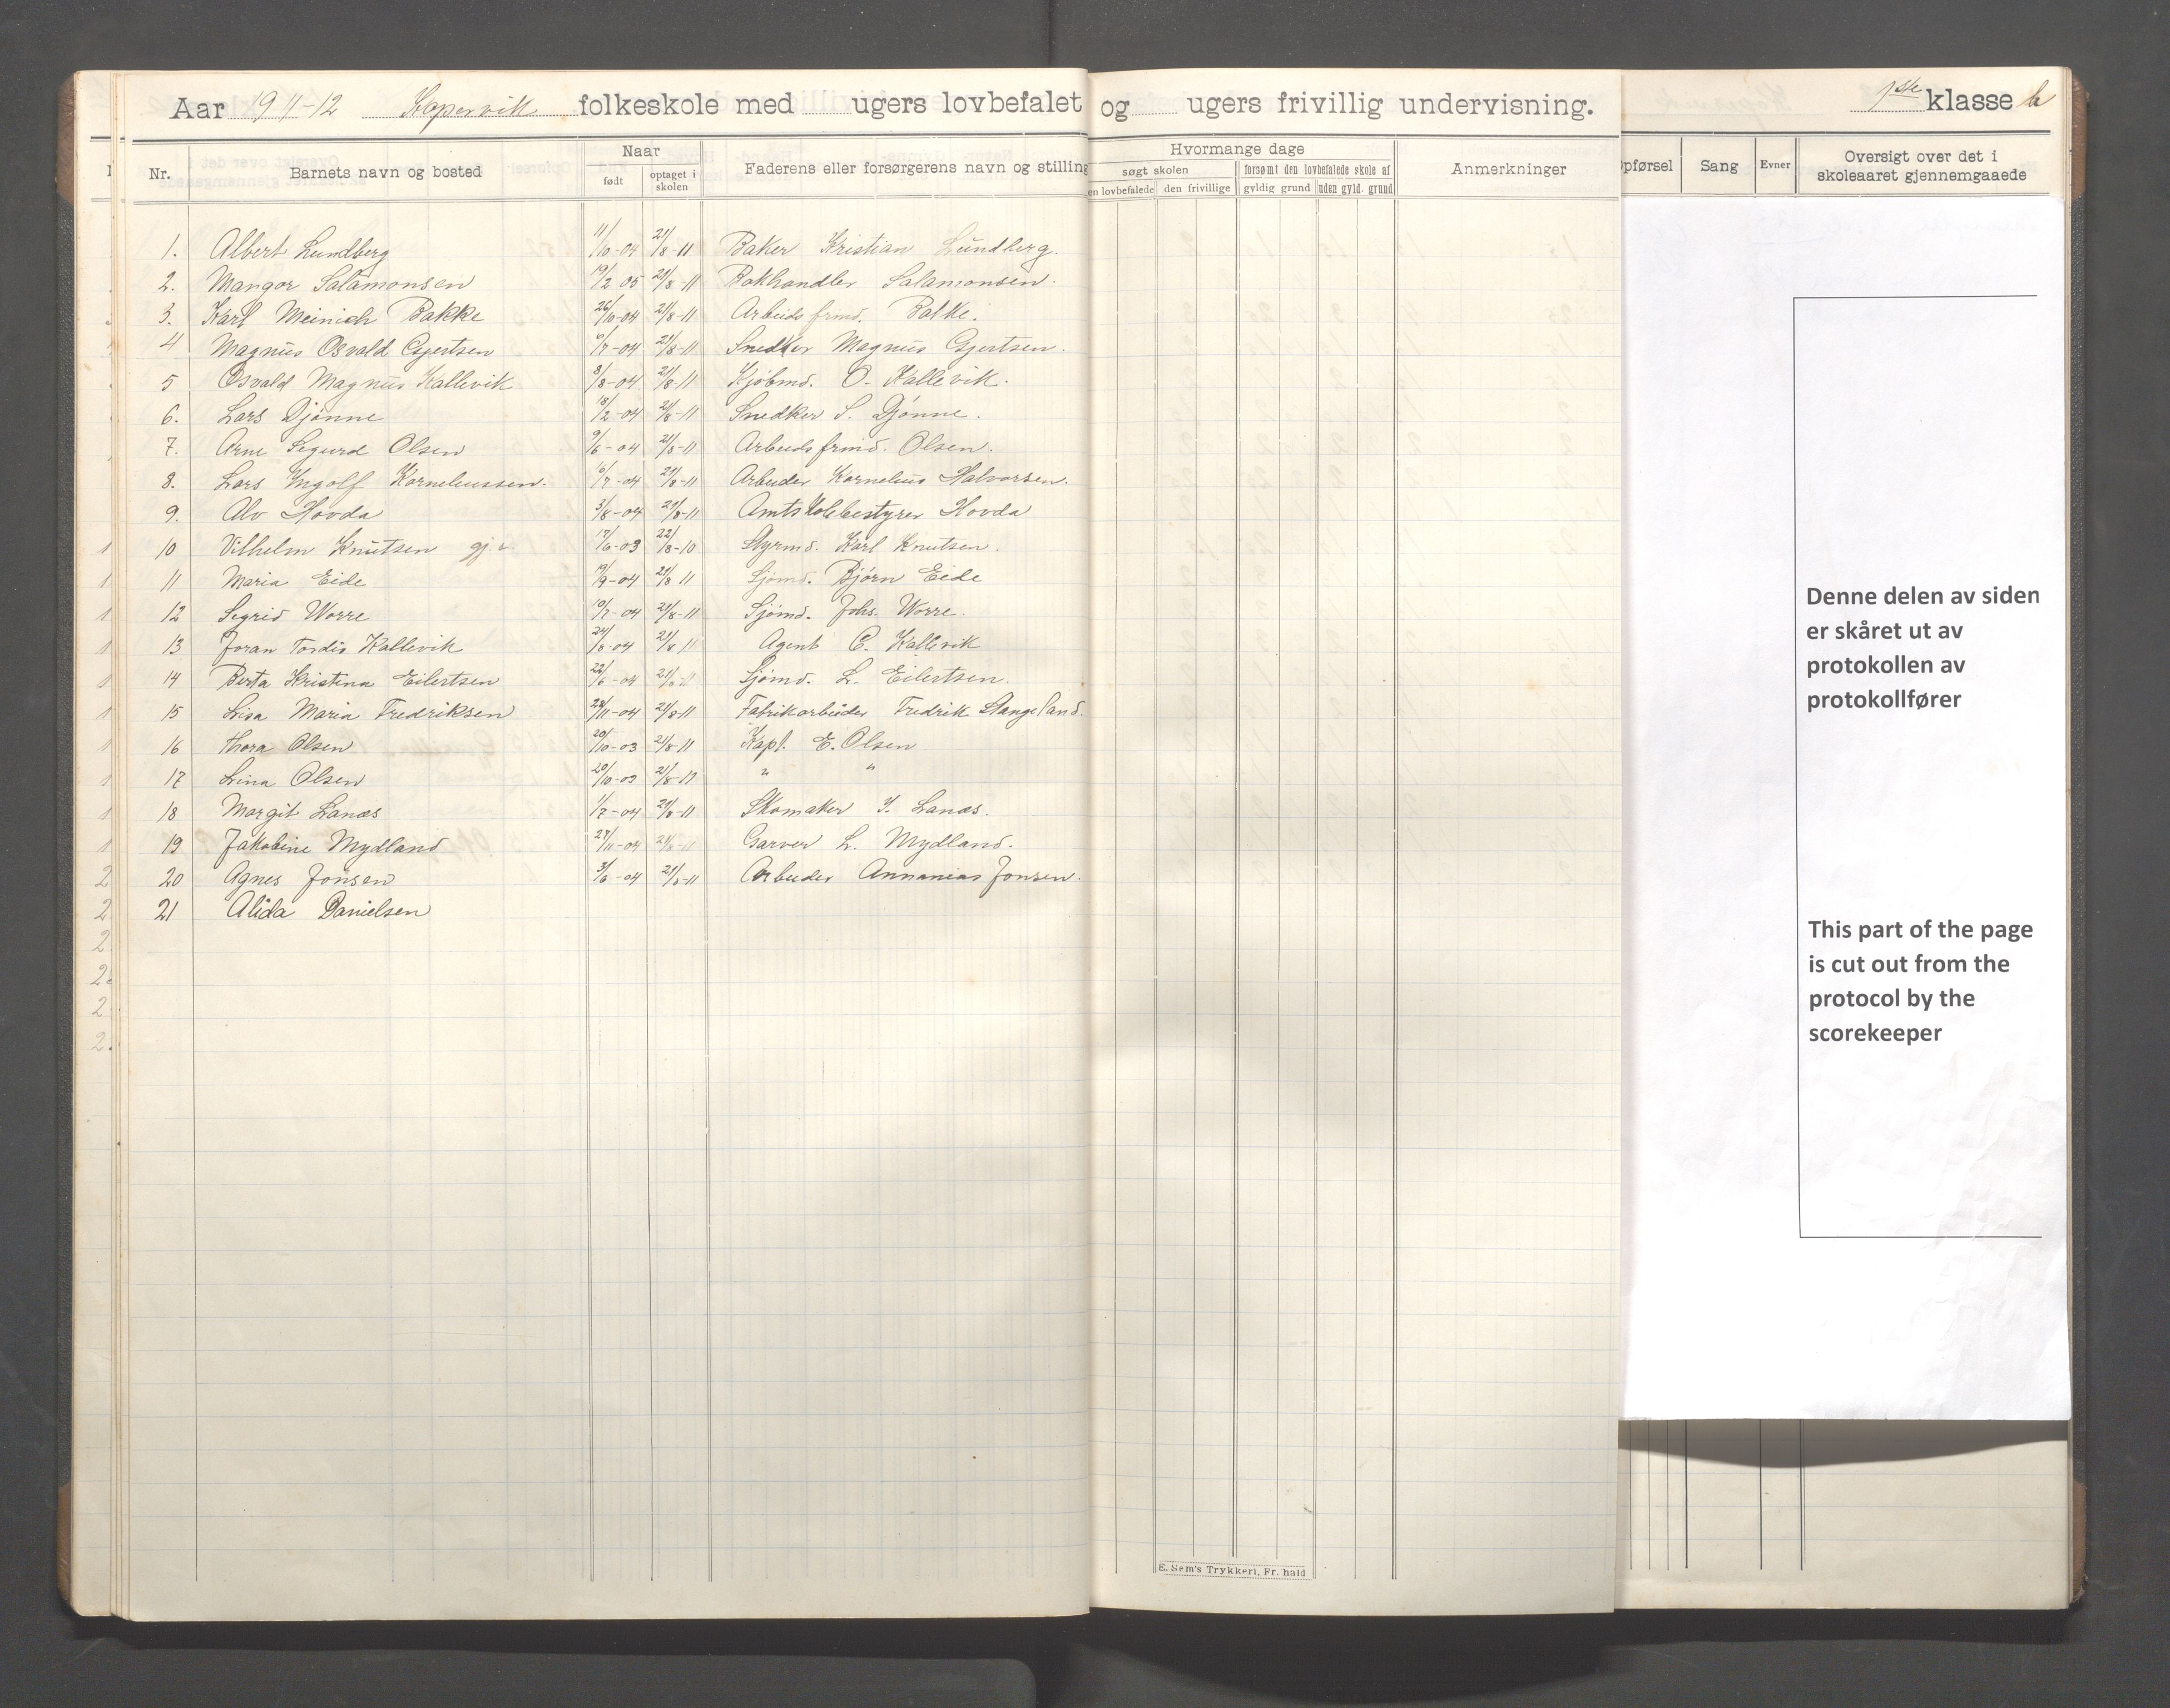 Aar 1911-12 Kopervik folkeskole med ugers lovbefalet og ugers frivillig undervisning. 1ste klasse b
Nr. Barnets navn og bosted Naar født optaget i skolen Faderens eller forsørgerens navn og stilling Hvormange dage søgt skolen en lovbefalede den frivillige forsømt den lovbefalede skole af gyldig grund uden gyld. grund Anmerkninger pførsel Sang Evner Oversigt over det i skoleaaret gjennemgaaede
1. Albert Lundberg 11/10-04 21/8-11 Baker Kristian Lundberg.
2. Mangor Salamonsen 19/2 05 21/8-11 Bokhandler Salamonsen.
3. Karl Meinich Bakke 26/10-04 21/8-11 Arbeidsfrmd. Bakke.
4 Magnus Osvald Gjertsen 21/8-11 Snedker Magnus Gjertsen.
5 Osvald Magnus Kallevik 8/8-04 21/8-11 Kjøbmd. O. Kallevik.
6. Lars Djønne 18/2-04 21/8-11 Snedker S. Djønne.
7. Arne Sigurd Olsen 9/6-04 21/8-11 Arbeidsfrmd. Olsen.
8. Lars Ingolf Korneliussen. 6/7-04 21/8-11 Arbeider Kornelius Halvorsen.
9. Alv Hovda 3/8-04 21/8-11 Amtskolebestyrer Hovda
10 Vilhelm Knutsen 17/6-03 22/8-10 Styrmd. Karl Knutsen.
11 Maria Eide 19/9-04 21/8 11 Sjömd. Bjørn Eide
12 Sigrid Worre 19/7-04 21/8-11 Sjömd. Johs. Worre.
13 Joran Tordis Kallevik 24/8-04 21/8 11 Agent C. Kallevik
14 Berta Kristina Eilertsen 22/6-04 21/8-11 Sjömd. L. Eilertsen.
15 Lisa Maria Fredriksen 28/11-04 21/8-11 Fabrikarbeider Fredrik Stangeland.
16 Thora Olsen 20/10-03 21/8-11 Kapt. E. Olsen
17 Lina Olsen 20/10-03 21/8-11 " "
18 Margit Lanæs 1/7-04 21/8-11 Skomaker Y. Lanæs.
19 Jakobine Mydland 27/11-04 21/8-11 Garver L. Mydland.
20 Agnes Jonsen 3/6-04 21/8-11 Arbeider Annanias Jonsen.
21 Alida Danielsen
Denne delen av siden
er skåret ut av
protokollen av
protokollfører
This part of the page
is cut out from the
protocol by the
scorekeeper
E. Sem's Trykkeri, Fr.hald